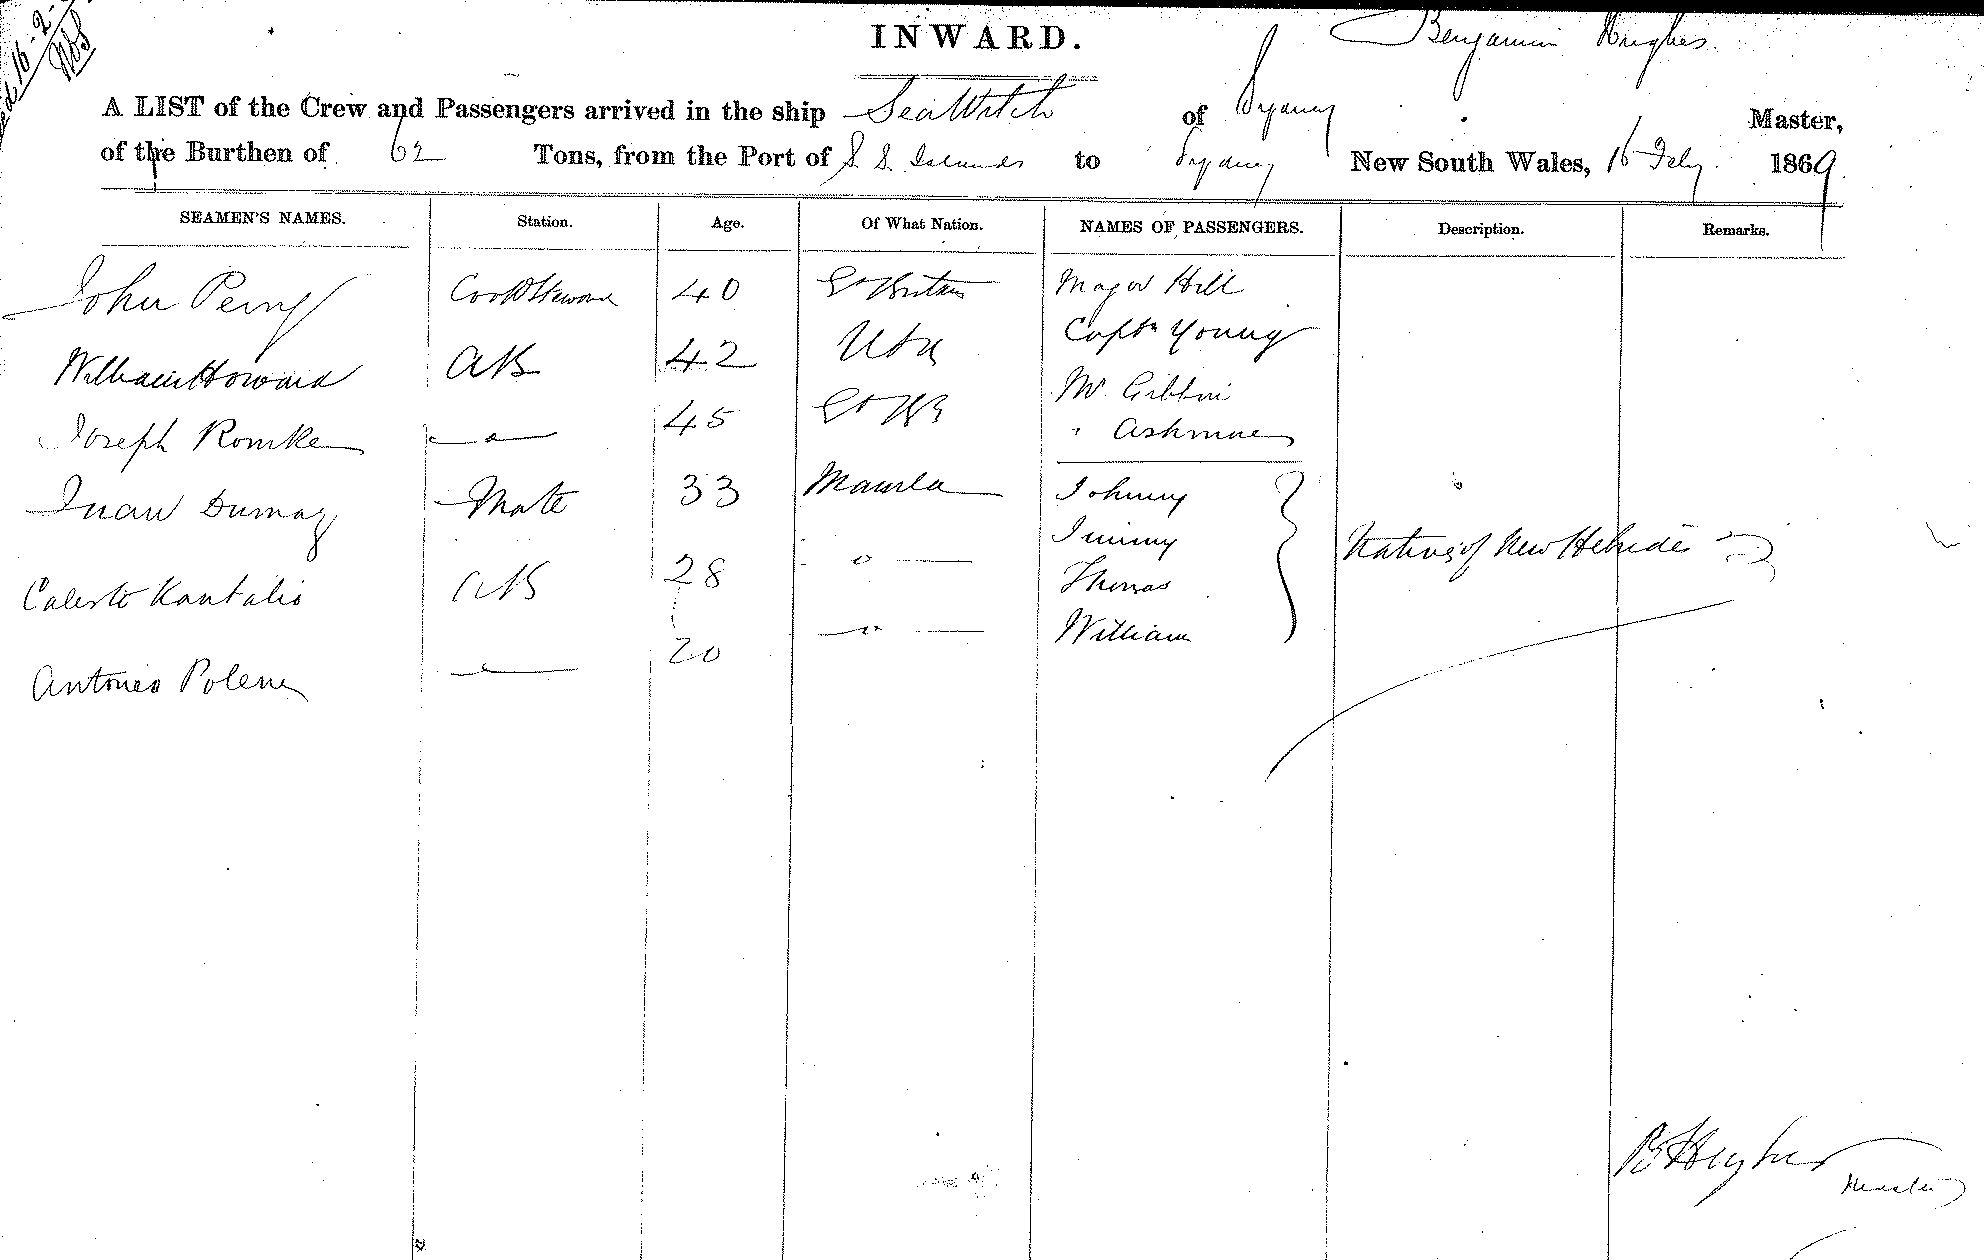 16-2-
INWARD.
Benjamin Hughes
A LIST of the Crew and Passengers arrived in the ship Sea Witch of Sydney Master,
of the Burthen of 62 Tons, from the Port of S. S. Islands to Sydney New South Wales, 16 Feby 1869
SEAMEN'S NAMES. Station. Age. Of What Nation. NAMES OF PASSENGERS. Description. Remarks.
John Perry Cook & Steward 40 Gt Britain Major Hill
William Howard AB 42 Captn Young
Joseph Romke — " — 45 Gt Mr Gibbin
" Ashmore
Juan Dumay Mate 33 Manila Johnny
Jimmy
Natives of New Hebrides
Calesto Kantalio AB 28 " — Thomas
Antonio Polena — " — 20 — " — William
B Hughes
Master